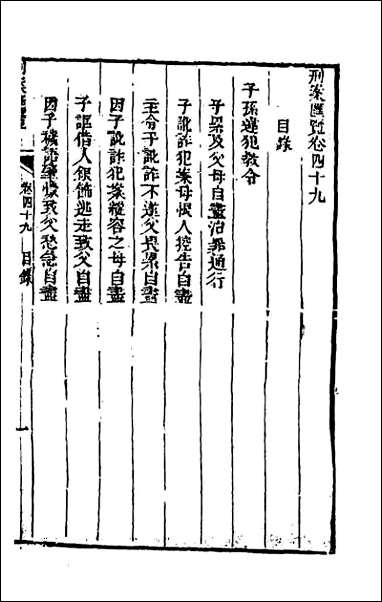 刑案匯覽卷四十九
目錄
子孫違犯教令
子累及父母自盡治罪通行
子訛詐犯案母恨人控告自盡
主令子訛詐不遂父畏累自盡
因子訛詐犯案縱容之母自盡
子誆借人銀飾逃走致父自盡
因子穢語致父愁急自盡
卷四十九 目錄